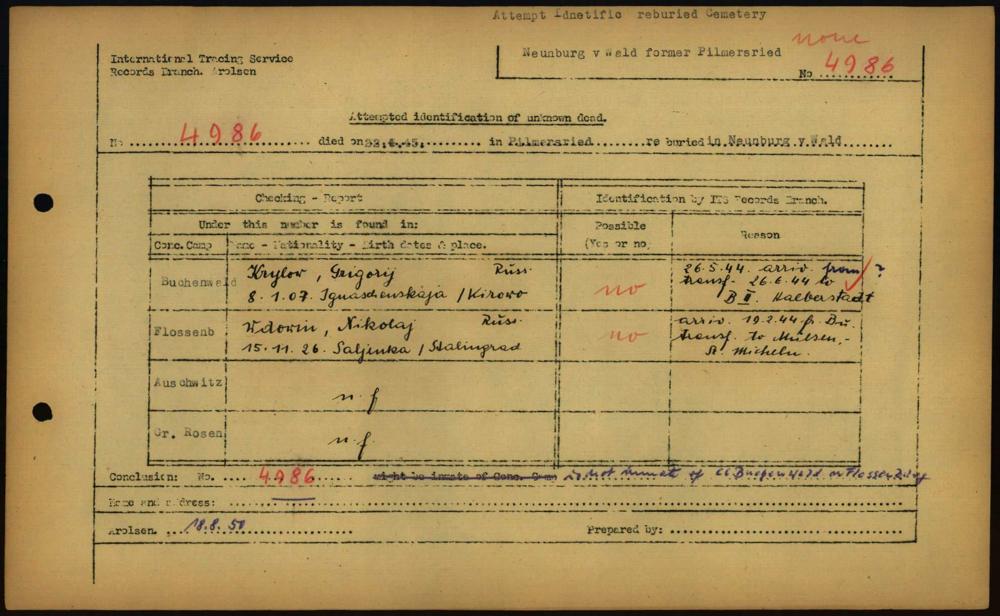 Attempt Idnetific reburied Cemetery
Neunburg v Wald former Pilmersried
none
No 4986
International Tracing Service
Records Branch. Arolsen
Attempted identification of unknown dead.
No 4986 died on 22.4.45. in Pilmersried re buried in Neunburg v. Wald
Checking - Report
Identification by ITS Records Branch.
Under this number is found in:
Possible (Yes or no)
Reason
Conc. Camp Name - Nationality - Birth dates & place.
Buchenwald
Krylow, Grigorij Russ.
8.1.07. Ignaschenskaja / Kirowo
no
26.5.44 arriv. from ?
transf. 26.6.44 to
B II. Halberstadt
Flossenb
Wdowin, Nikolaj Russ.
15.11.26. Saljenka / Stalingrad
no
arriv. 19.2.44 fr. Bu.
transf. to Mülsen,-
St. Micheln.
Auschwitz
n.f
Gr. Rosen
n.f.
Conclusion: No. 4986 might be inmate of Conc. Camp is not inmate of CC Buchenwald or Flossenbürg
Name and address:
Arolsen. 18.8.50 Prepared by: